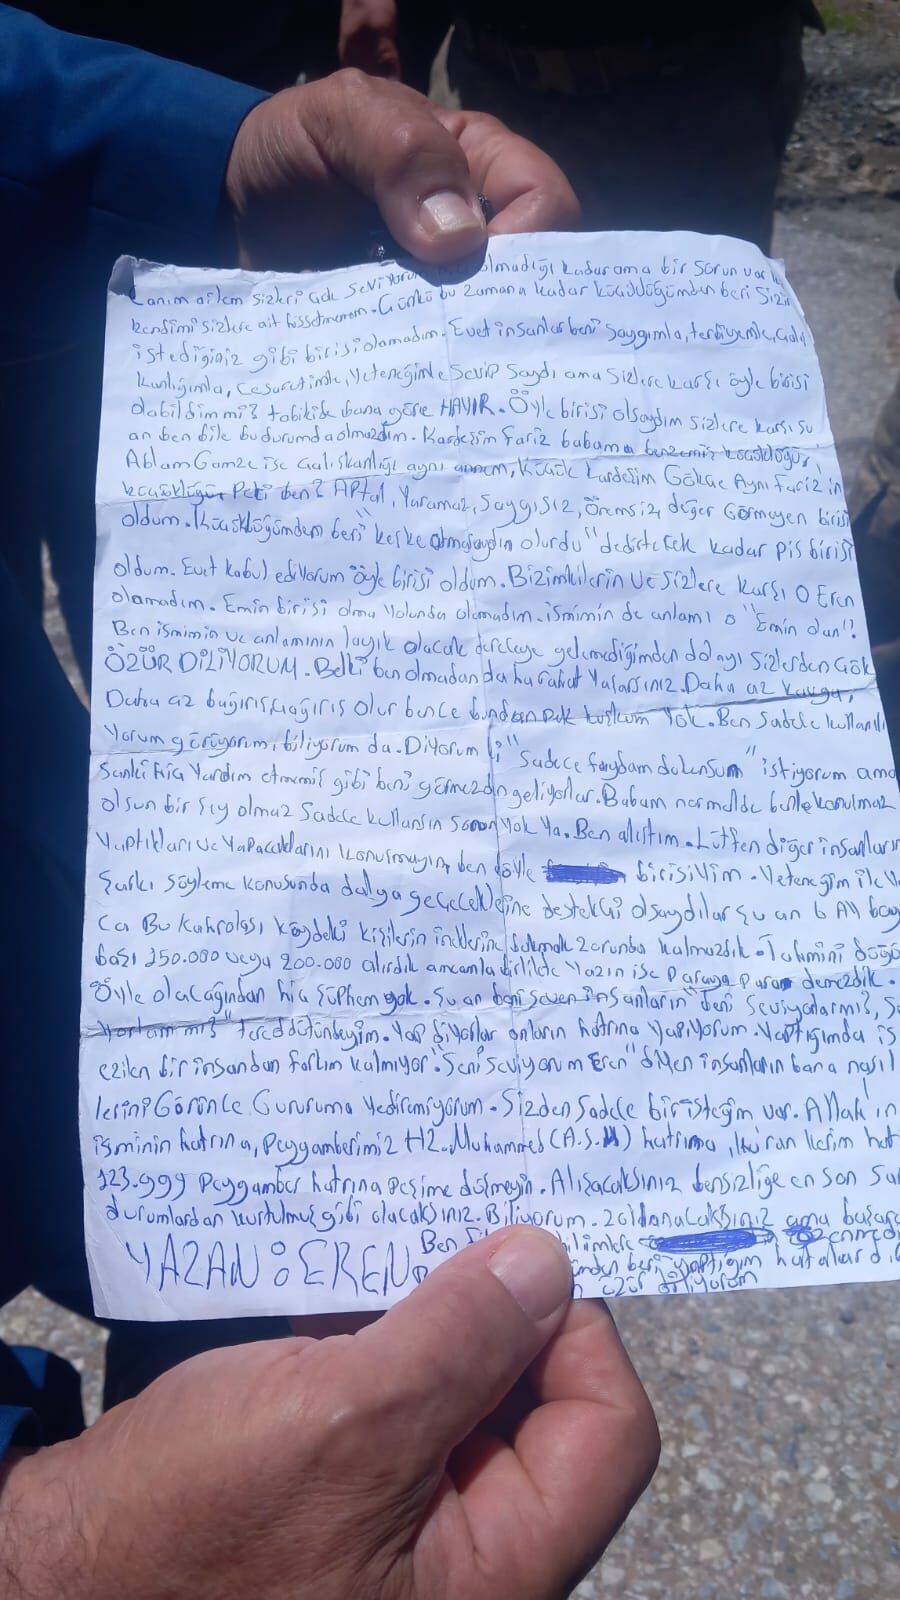 Canım ailem sizleri çok seviyorum olmadığı kadar ama bir sorun var
kendimi sizlere ait hissetmemem. Çünkü bu zamana kadar küçüklüğümden beri sizin
istediğiniz gibi birisi olamadım. Evet insanlar beni saygımla, terbiyemle, çalış
kanlığımla, cesaretimle, yeteneğimle sevip saydı ama sizlere karşı öyle birisi
olabildim mi? tabikide bana göre HAYIR. Öyle birisi olsaydım sizlere karşı şu
an ben bile bu durumda olmazdım. Kardeşim Fariz babama benzemiş küçüklüğü,
Ablam Gamze ise çalışkanlığı aynı annem, küçük kardeşim Gökçe Aynı Fariz'in
küçüklüğü. Peki ben? APtal, Yaramaz, Saygısız, önemsiz, değer Görmeyen birisi
oldum. Küçüklüğümden beri "keşke olmasaydın olurdu" dedirtecek kadar pis birisi
oldum. Evet kabul ediyorum öyle birisi oldum. Bizimkilerin ve sizlere karşı O Eren
olamadım. Emin birisi olma yolunda olamadım. ismimin de anlamı o "Emin olan"!
Ben ismimin ve anlamının layık olacak dereceye gelemediğimden dolayı sizlerden Çok
ÖZÜR DİLİYORUM. Belki ben olmadan daha rahat Yaşarsınız. Daha az kavga,
Daha az bağırış, çağırış olur bence bundan pek kuşkum Yok. Ben sadece kullanılı
Yorum görüyorum, biliyorum da. Diyorum ki "Sadece faydam dokunsun" istiyorum ama
Sanki hiç Yardım etmemiş gibi beni görmezden geliyorlar. Babam normalde benle konuşmaz
olsun bir şey olmaz Sadece kullansın sorun yok ya. Ben alıştım. Lütfen diğer insanların
Yaptıkları ve Yapacaklarını konuşmayın, ben böyle birisiyim. Yeteneğim ile
Şarkı söyleme konusunda dalga geçeceklerine destekçi olsaydılar şu an 6 AY
ca Bu kahrolası köydeki kişilerin ineklerine bakmak zorunda kalmazdık. Tahmini düğün
başı 150.000 veya 200.000 alırdık amcamla birlikte Yazın ise Paraya Para demezdik.
Öyle olacağından hiç şüphem yok. Şu an beni seven insanların "beni seviyorlarmı,
Yorlar mı?" tereddütündeyim. Yap diyorlar onların hatrına yapıyorum. Yaptığımda
ezilen bir insandan farkım kalmıyor. "Seni seviyorum Eren" diyen insanların bana nasıl
lerini Görünce Gururuma Yediremiyorum. Sizden Sadece bir isteğim var. Allah'ın
isminin hatrına, Peygamberimiz HZ. Muhammed (A.S.M) hatrına, Kuran Kerim
123.999 Peygamber hatrına peşime düşmeyin. Alışacaksınız bensizliğe en son
durumlardan kurtulmuş gibi olacaksınız. Biliyorum. Zorlanacaksınız ama
Ben
YAZAN : EREN beri yaptığım hatalar
özür diliyorum